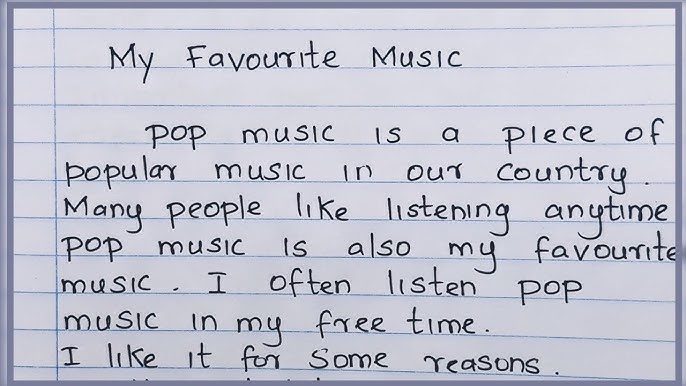 My Favourite Music
pop music is a piece of
popular music in our country.
Many people like listening anytime
pop music is also my favourite
music. I often listen pop
music in my free time.
I like it for some reasons.